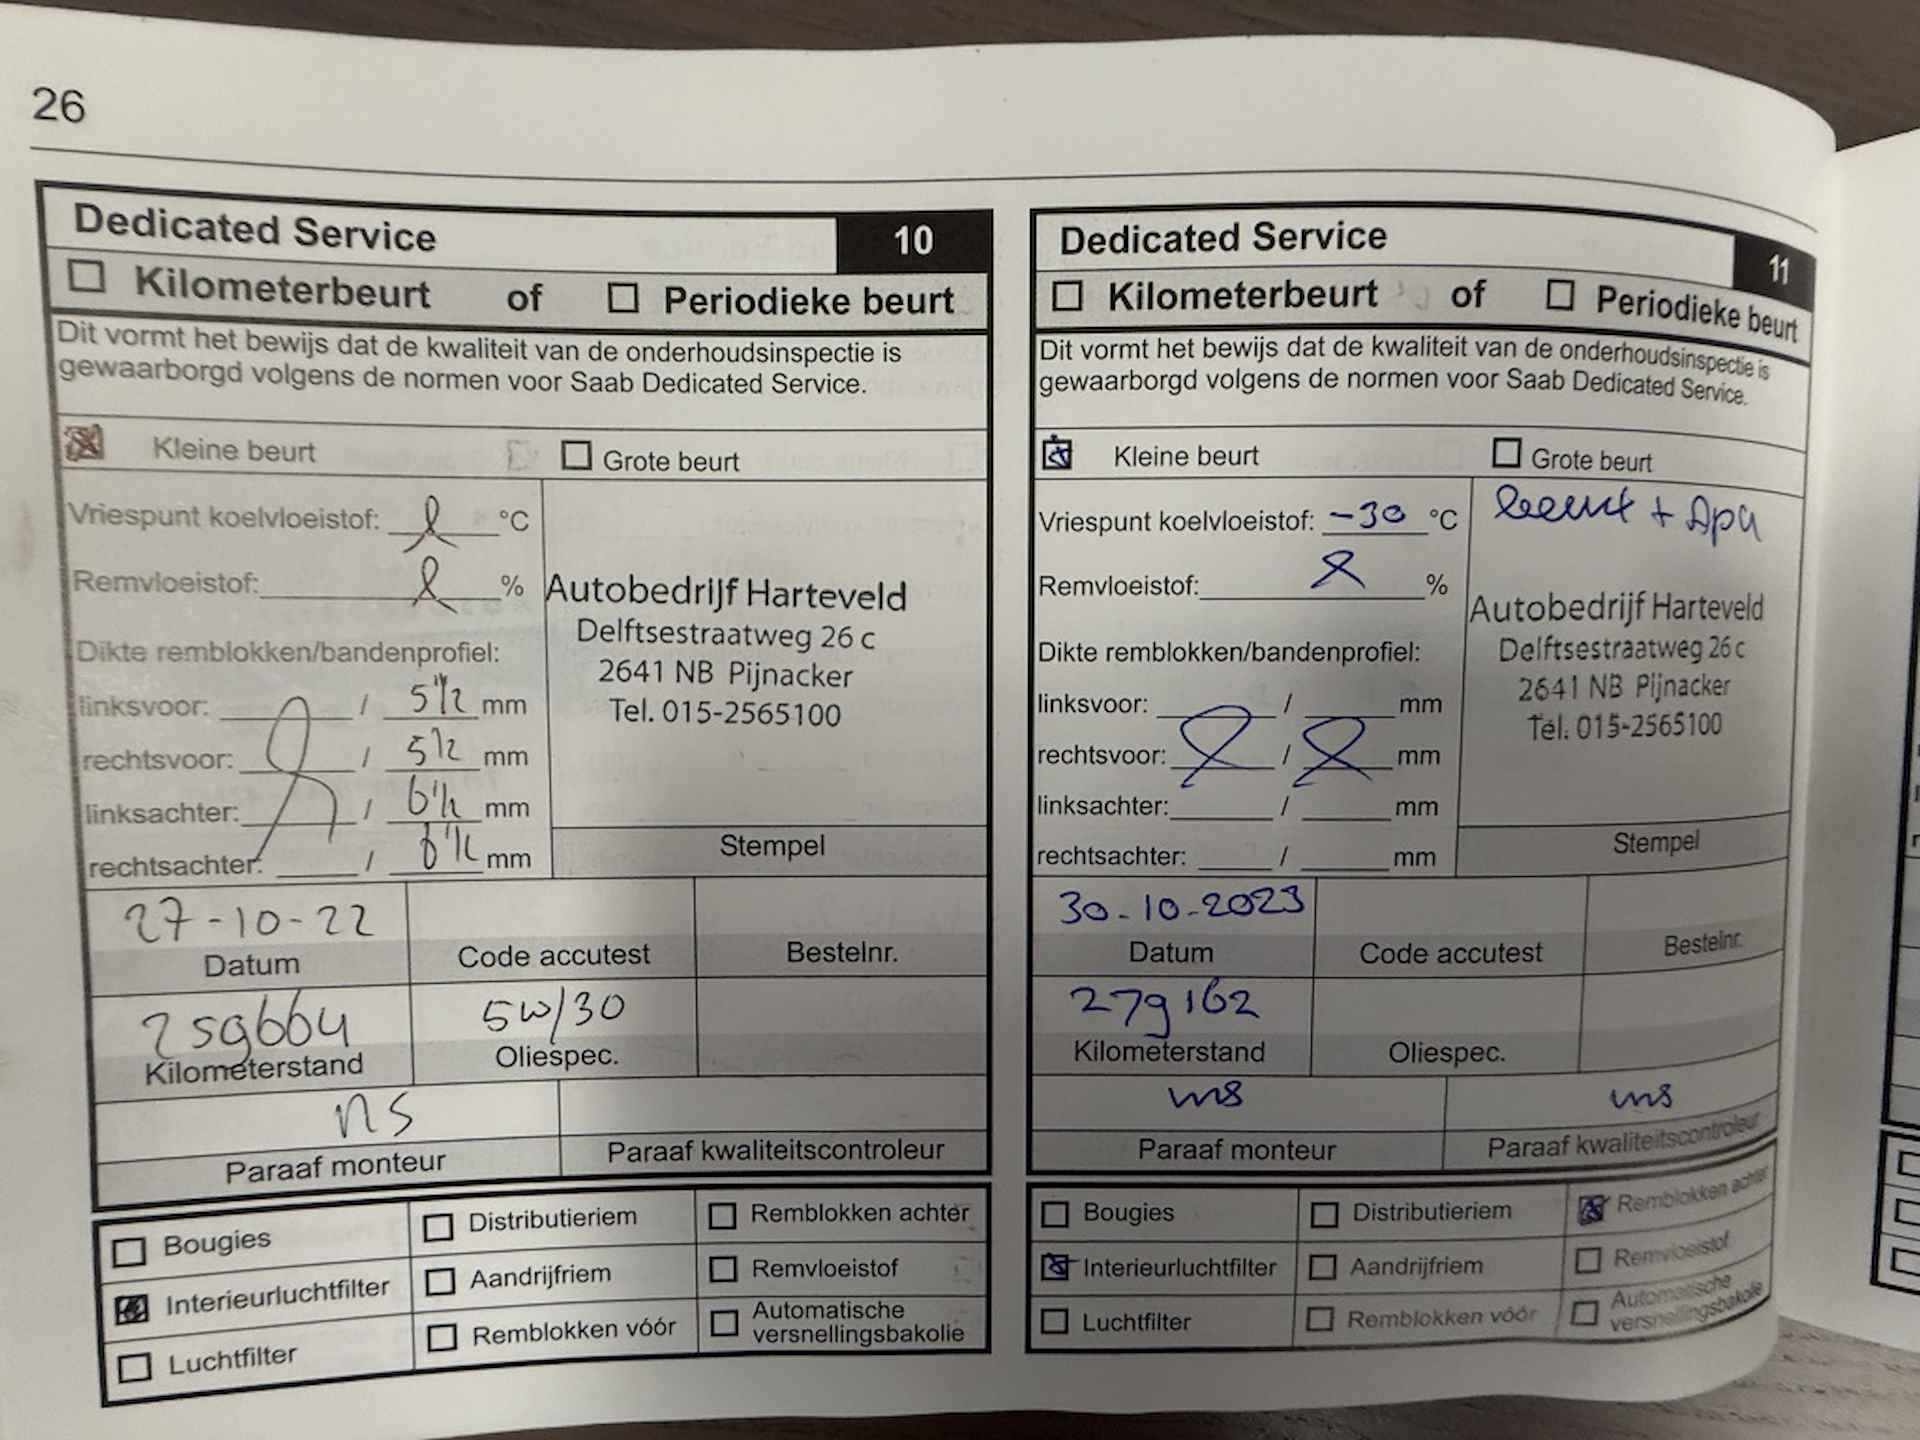 26
Dedicated Service 10
Kilometerbeurt of Periodieke beurt
Dit vormt het bewijs dat de kwaliteit van de onderhoudsinspectie is
gewaarborgd volgens de normen voor Saab Dedicated Service.
Kleine beurt Grote beurt
Vriespunt koelvloeistof: °C
Remvloeistof: %
Dikte remblokken/bandenprofiel:
linksvoor: / 5 1/2 mm
rechtsvoor: / 5 1/2 mm
linksachter: / 6 1/2 mm
rechtsachter: / 6 1/2 mm
Autobedrijf Harteveld
Delftsestraatweg 26 c
2641 NB Pijnacker
Tel. 015-2565100
Stempel
27-10-22
Datum Code accutest Bestelnr.
259664 5w/30
Kilometerstand Oliespec.
ns
Paraaf monteur Paraaf kwaliteitscontroleur
Bougies Distributieriem Remblokken achter
Interieurluchtfilter Aandrijfriem Remvloeistof
Luchtfilter Remblokken vóór Automatische
versnellingsbakolie
Dedicated Service 11
Kilometerbeurt of Periodieke beurt
Dit vormt het bewijs dat de kwaliteit van de onderhoudsinspectie is
gewaarborgd volgens de normen voor Saab Dedicated Service.
Kleine beurt Grote beurt
Vriespunt koelvloeistof: -30 °C
Remvloeistof: %
Dikte remblokken/bandenprofiel:
linksvoor: / mm
rechtsvoor: / mm
linksachter: / mm
rechtsachter: / mm
beurt + Apk
Autobedrijf Harteveld
Delftsestraatweg 26 c
2641 NB Pijnacker
Tel. 015-2565100
Stempel
30-10-2023
Datum Code accutest Bestelnr.
279162
Kilometerstand Oliespec.
ms ms
Paraaf monteur Paraaf kwaliteitscontroleur
Bougies Distributieriem Remblokken achter
Interieurluchtfilter Aandrijfriem Remvloeistof
Luchtfilter Remblokken vóór Automatische
versnellingsbakolie